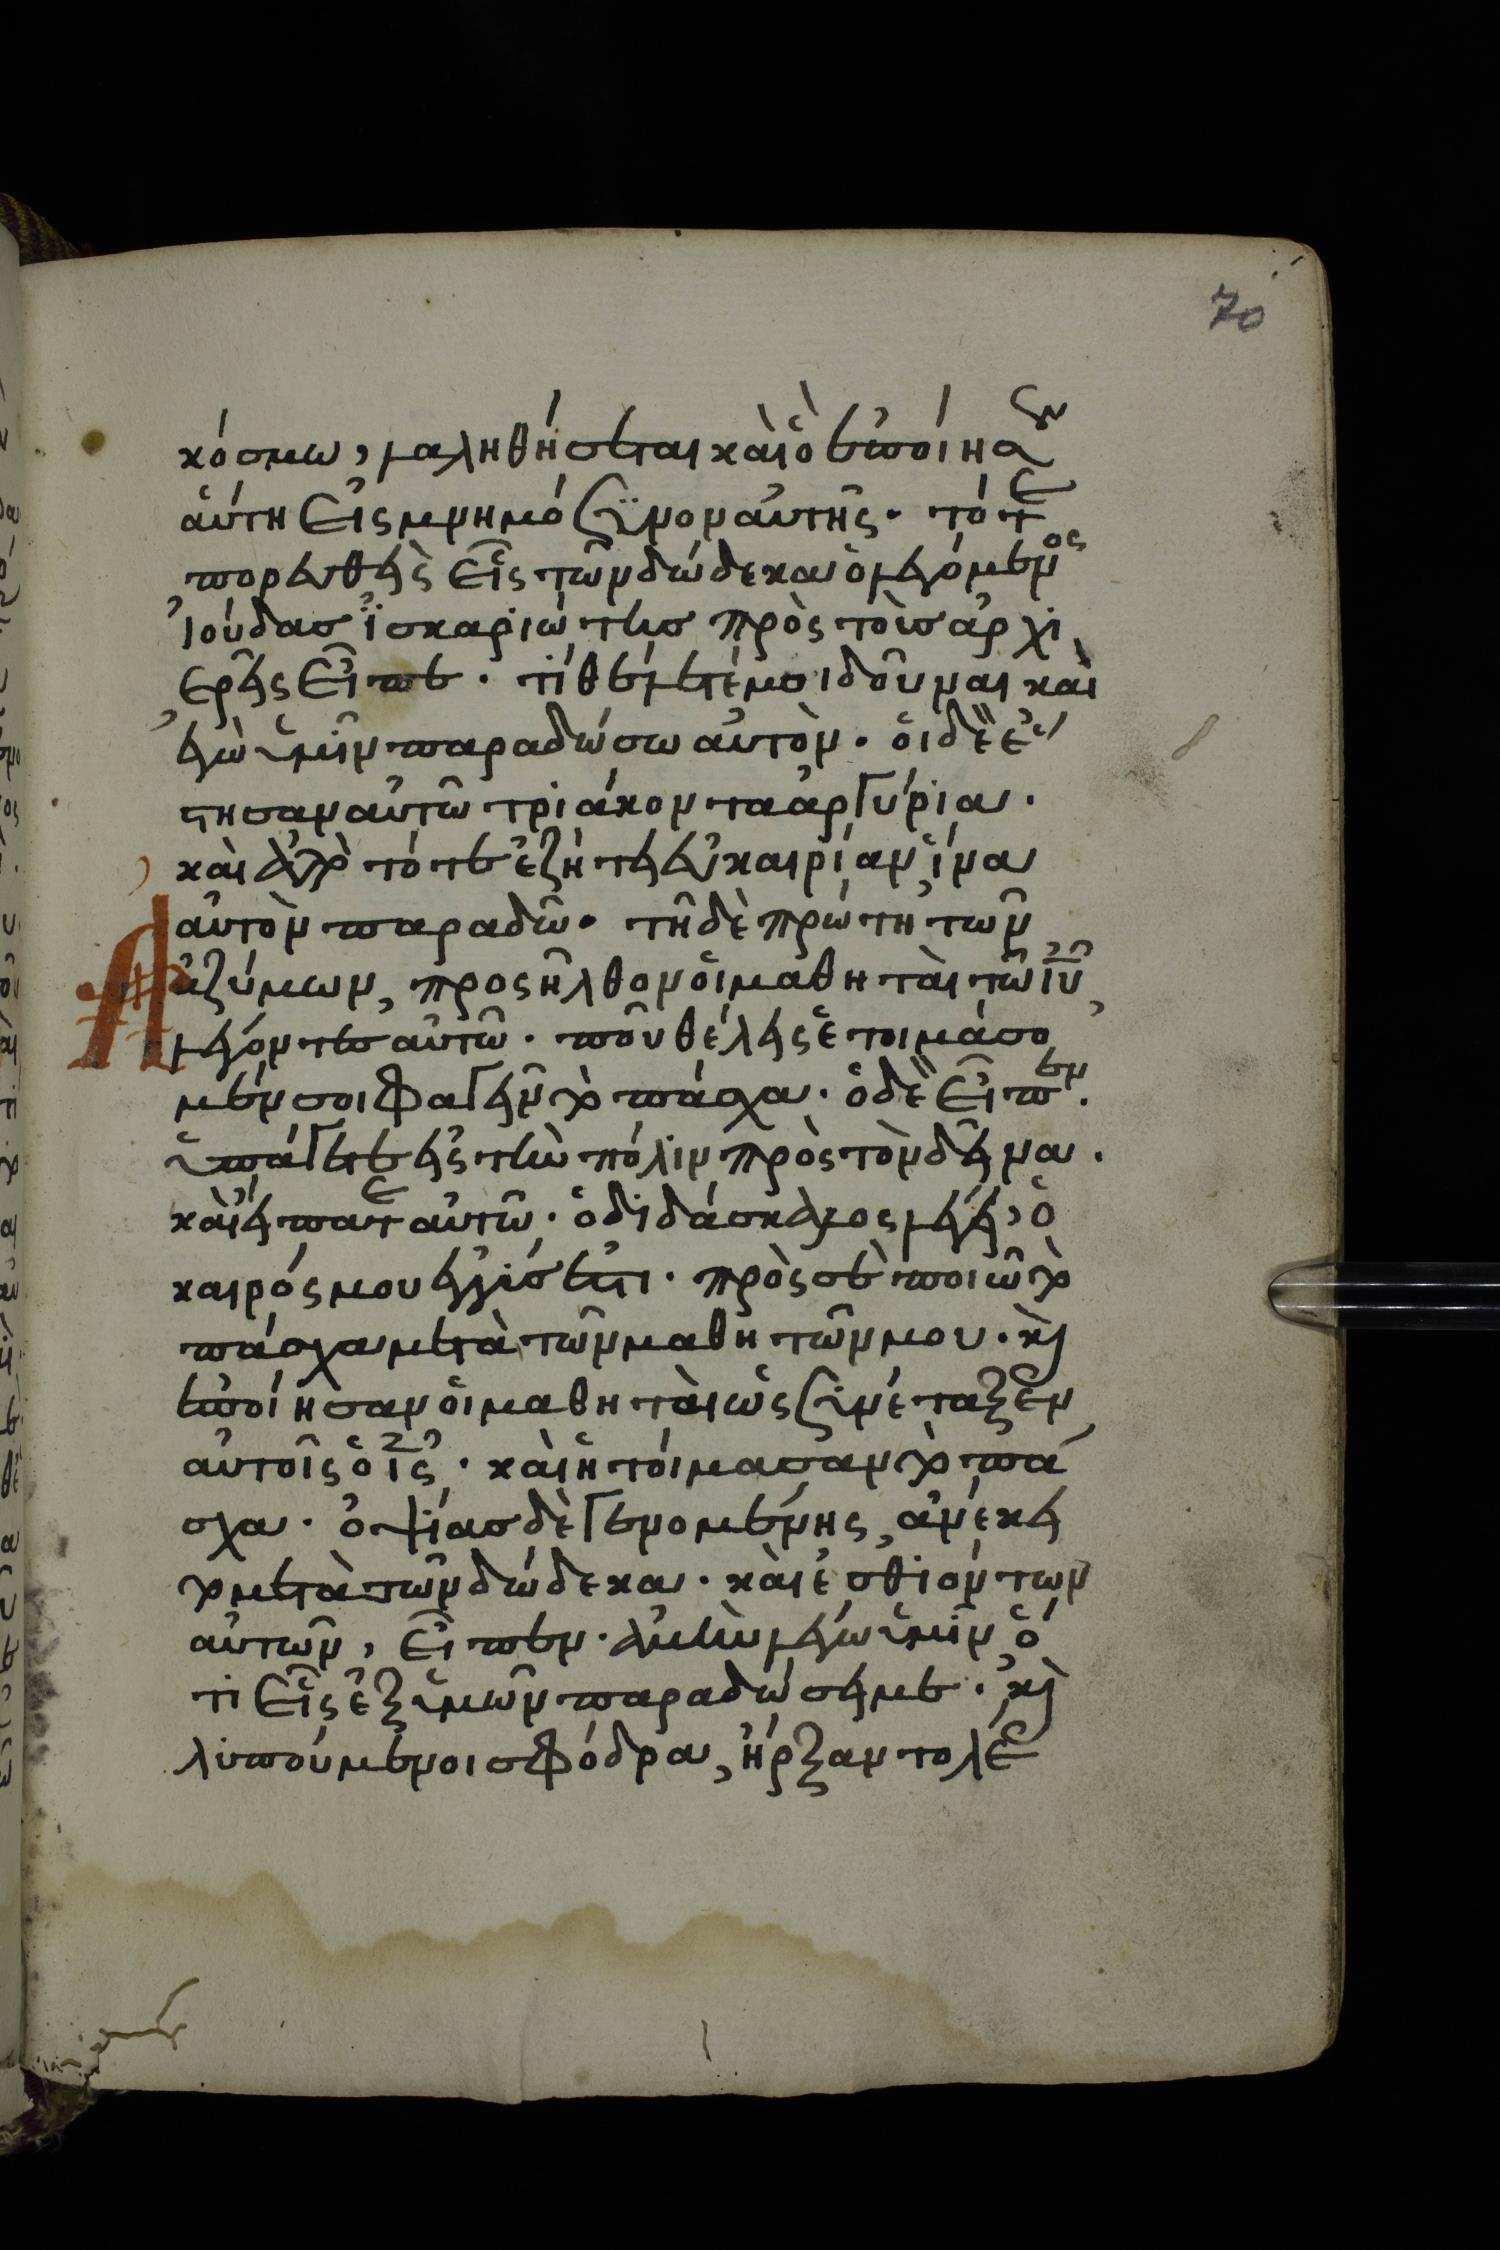 70
κόσμω, λαληθήσεται καὶ ὃ ἐποίησεν
ἄυτη εἰς μνημόσϋνον αὐτῆς. τότε
πορευθεὶς εἷς τῶν δώδεκα ὁ λεγόμενος
ἰούδας ἰσκαριώτης πρὸς τοὺς ἀρχι
ερεῖς εἶπε. τί θέλετέ μοι δοῦναι καὶ
ἐγὼ ὑμῖν παραδώσω αὐτὸν. ὁι δὲ ἔσ
τησαν αὐτῶ τριάκοντα ἀργύρια.
καὶ ἀπὸ τότε ἐζήτει εὐκαιρίαν ἵνα
αὐτὸν παραδῶ. τῆ δὲ πρώτη τῶν
ἀζύμων, προσῆλθον ὁι μαθηταὶ τῶ ἰῦ,
λέγοντες αὐτῶ. ποῦ θέλεις ἑτοιμάσο
μέν σοι φαγεῖν τὸ πάσχα. ὁ δὲ εἶπεν.
ὑπάγετε εἰς τὴν πόλιν πρὸς τὸν δεῖνα.
καὶ εἴπατε αὐτῶ. ὁ διδάσκαλος λέγει, ὁ
καιρός μου ἐγγύς ἐστι. πρὸς σὲ ποιῶ τὸ
πάσχα μετὰ τῶν μαθητῶν μου. κὶ
ἐποίησαν ὁι μαθηταὶ ὡς συνέταξεν
αὐτοῖς ὁ ἰς. καὶ ἡτοίμασαν τὸ πά
σχα. ὀψίας δὲ γενομένης, ἀνέκει
το μετὰ τῶν δώδεκα. καὶ ἐσθιόντων
αὐτῶν, εἶπεν. ἀμὴν λέγω ὑμῖν, ὅ
τι εἷς ἐξ ὑμῶν παραδώσει με. κὶ
λυπούμενοι σφόδρα, ἤρξαντο λέ